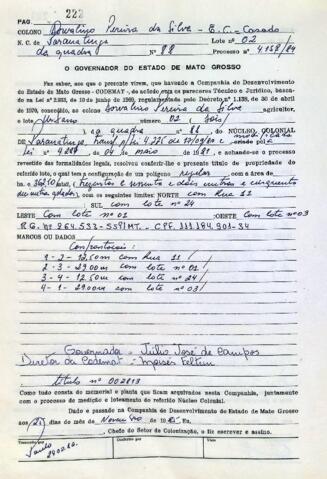 PAG. 222
COLONO Louratino Pereira da Silva - B.C. - Casado
N. C. de Paranatinga Lote nº 02
da quadra Nº 88 Processo nº 4.158/84
O GOVERNADOR DO ESTADO DE MATO GROSSO
Faz saber, aos que o presente virem, que havendo a Companhia de Desenvolvimento
do Estado de Mato Grosso - CODEMAT -, deferido os pareceres Técnico e Jurídico, basea-
da na Lei nº 2.253, de 10 de junho de 1960, regulamentada pelo Decreto nº 1.138, de 30 de abril
de 1970, concedido, ao colono Louratino Pereira da Silva agricultor,
o lote Urbano número 02 (dois)
da quadra nº 88 DO NÚCLEO COLONIAL
de Paranatinga, criado pela
lei nº de 04 de maio de 1981, e achando-se o processo
revestido das formalidades legais, resolveu conferir-lhe o presente título de propriedade do
referido lote, o qual tem a configuração de um polígono regular com a área de
362,50 (trezentos e sessenta e dois metros e cinquenta
com os seguintes limites: NORTE com Rua 11
SUL com lote nº 24
LESTE Com lote nº 01 OESTE Com lote nº 03
R.G. Nº 864.533-SSP/MT. - CPF. 111.184.901-34
MARCOS OU DADOS Confrontações:
1 - 2 - 12,50m com Rua 11
2 - 3 - 29,00m com lote nº 01
3 - 4 - 12,50m com lote nº 24
4 - 1 - 29,00m com lote nº 03
Governador - Júlio José de Campos
Diretor da Codemat - Moisés Feltrin
título nº 002813
Como tudo consta do memorial e planta que ficam arquivados nesta Companhia, juntamente
com o processo de medição e loteamento do referido Núcleo Colonial.
Dado e passado na Companhia de Desenvolvimento do Estado de Mato Grosso
aos 21 dias do mês de Novembro de 19
Chefe do Setor de Colonização, o fiz escrever e assino.
Transcrito por Conferido por Visto